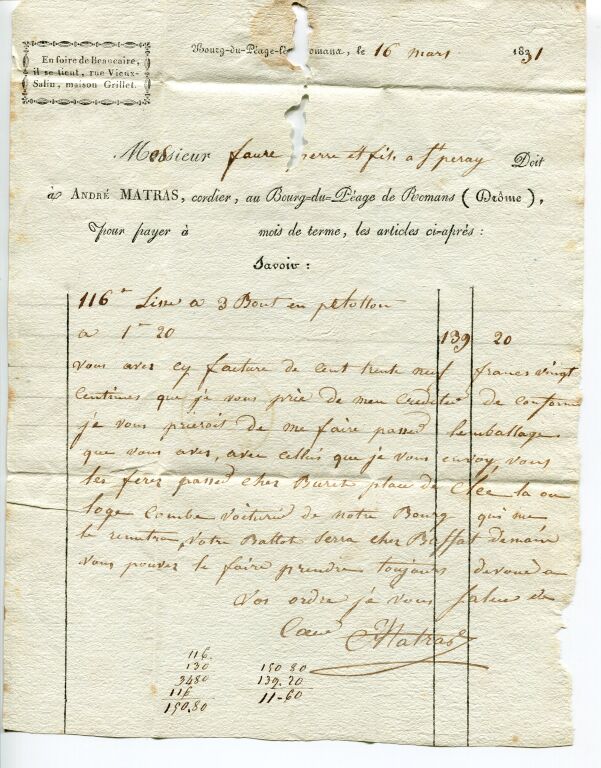 En foire de Beaucaire,
il se tient, rue Vieux-
Salin, maison Grillet.
Bourg-du-Péage-lès-Romans, le 16 mars 1831
Messieur faure pierre et fils a St peray Doit
à ANDRÉ MATRAS, cordier, au Bourg-du-Péage de Romans (Drôme),
Pour payer à mois de terme, les articles ci-après :
Savoir :
116 Lisse a 3 Bout en
a 1 20 139 20
vous aves cy facture de cent trente neuf francs vingt
centimes que je vous prie de men crediter de conforme
je vous prierois de me faire passer lemballage
que vous aves, avec cellui que je vous envoy, vous
les ferez passer chez Buret place de la ou
loge Combe voiturier de notre Bourg qui me
le remettra, votre Ballot serra chez Baffat demain
vous pouvez le faire prendre toujours devoué a
vos ordre je vous salue de
Coeur Matras
116.
130
3480
116
150.80
150 80
139.20
11-60